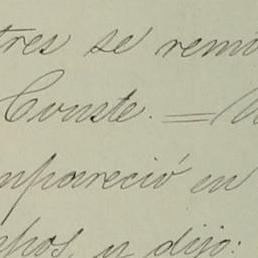 tres se remi
Conste. = 
mpareció en
chos, y dijo: